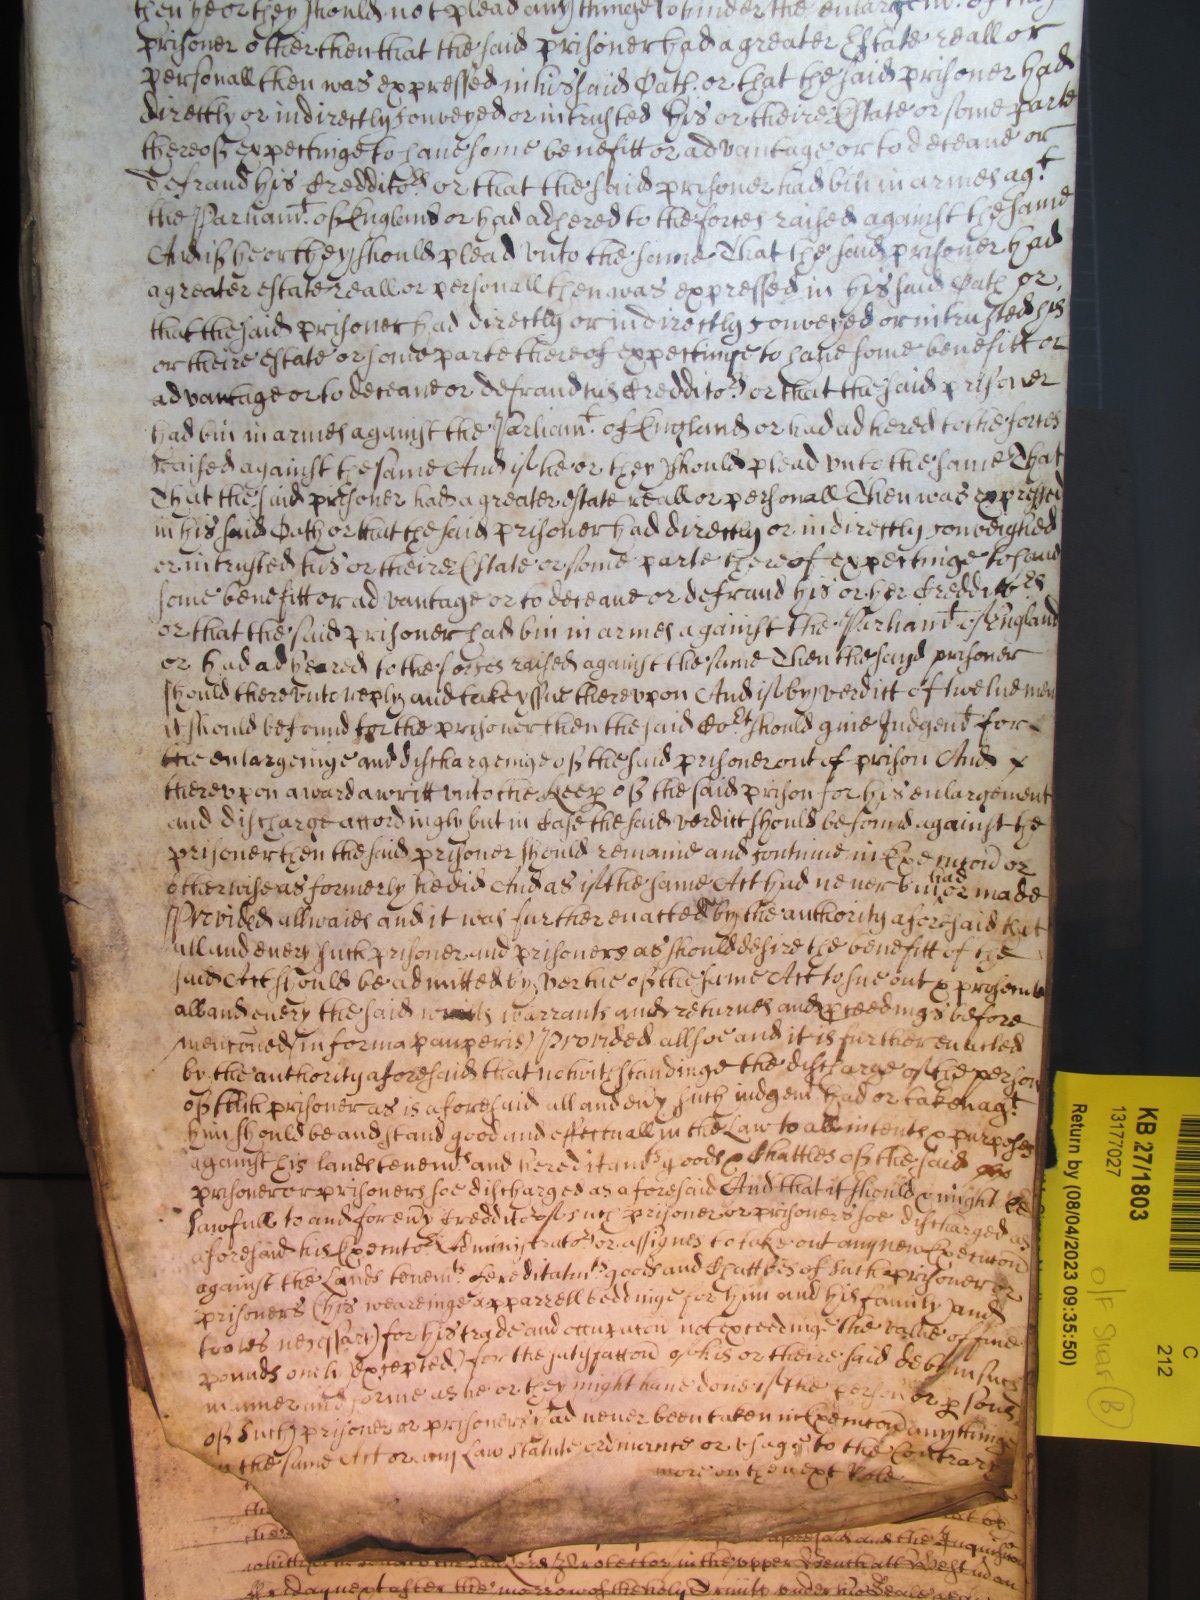 then he or they should not plead any thinge to hinder the enlargemt. of the
prisoner other then that the said prisoner had a greater Estate reall or
personall then was expressed in his said Oath. or that the said prisoner had
directly or indirectly Conveyed or intrusted his or theire Estate or some parte
thereof expectinge to have some benefitt or advantage or to deceave or
defraud his Credditors or that the said prisoner had bin in armes agt.
the Parliamt. of England or had adhered to the forces raised against the same
And if he or they should plead vnto the same That the said prisoner had
a greater estate reall or personall then was expressed in his said Oath or
that the said prisoner had directly or indirectly conveyed or intrusted his
or theire estate or some parte thereof expectinge to have some benefitt or
advantage or to deceave or defraud his Credditors or that the said prisoner
had bin in armes against the Parliamt. of England or had adhered to the forces
raised against the same And if he or they should plead vnto the same That
That the said prisoner had a greater estate reall or personall Then was expressed
in his said Oath or that the said prisoner had directly or indirectly conveighed
or intrusted his or theire Estate or some parte thereof expectinge to have
some benefitt or advantage or to deceave or defraud his or her Credditors
or that the said prisoner had bin in armes against the Parliamt of England
or had adheared to the forces raised against the same Then the sayd prisoner
should therevnto reply and take yssue therevpon And if by verdict of twelve men
it should be found for the prisoner then the said Cort should give Judgemt for
the enlargeinge and dischargeinge of the said prisoner out of prison And
therevpon award a writt vnto the keep of the said prison for his enlargement
and discharge accordingly but in Case the said verdict should be found against the
prisoner then the said prisoner should remaine and continue in Execucion or
otherwise as formerly he did And as if the same Act had never bin had or made
Provided allwaies and it was further enacted by the authority aforesaid that
all and every such prisoner and prisoners as should desire the benefitt of the
said Act should be admitted by vertue of the same Act to sue out & prosecute
all and every the said writts warrants and returnes and pceedings before
mencioned in forma pauperis Provided allsoe and it is further enacted
by the authority aforesaid that notwithstandinge the discharge of the person
of such prisoner as is aforesaid all and evy such iudgemt had or taken agt
him should be and stand good and effectuall in the Law to all intents & purposes
against his lands tenemts and hereditamts goods & Chattles of the said
prisoner or prisoners soe discharged as aforesaid And that it should & might be
lawfull to and for evy Creddittor of such prisoner or prisoners soe discharged as
aforesaid his Executors Administrators or assignes to take out any new Execucion
against the Lands tenemts hereditamts goods and Chattles of such prisoner or
prisoners (his weareinge apparrell beddinge for him and his family and
tooles necessary for his trade and occupacion not exceedinge the value of five
pounds onely excepted) for the satisfaccion of his or theire said debt in such
manner and forme as he or they might have done if the person or psons
of such prisoner or prisoners had never been taken in Execucion any thinge
in the same Act or any Law statute ordinance or vsage to the Contrary
more on the next Role
Protector in the vpper Bench att Westm on
Fryday next after the morrow of the holy Trinity
KB 27/1803
13177027
Return by (08/04/2023 09:35:50)
C
212
O/F Shaf B